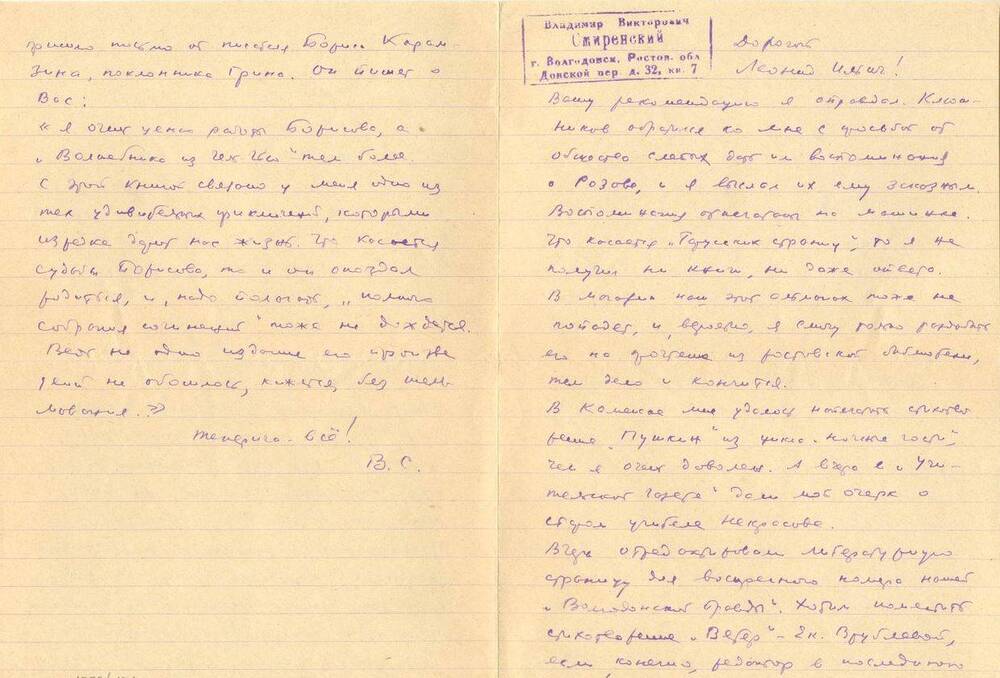 пришло письмо от писателя Бориса Карам-
зина, поклонника Грина. Он пишет о
Вас:
«Я очень ценю работы Борисова, а
„Волшебника из Гель-Гью" тем более.
С этой книгой связано у меня одно из
тех удивительных приключений, которыми
изредка дарит нас жизнь. Что касается
судьбы Борисова, то и он опоздал
родиться, и, надо полагать, „полного
собрания сочинений" тоже не дождется.
Ведь ни одно издание его произве-
дений не обошлось, кажется, без шель-
мования.»
Теперича - всё!
В. С.
Владимир Викторович
Смиренский
г. Волгодонск, Ростов. обл
Донской пер. д. 32, кв. 7
Дорогой
Леонид Ильич!
Вашу рекомендацию я оправдал. Ключ-
ников обратился ко мне с просьбой от
общества слепых дать им воспоминания
о Розове, и я выслал их ему заказным.
Воспоминания отпечатаны на машинке.
Что касается „Тарусских страниц", то я не
получил ни книги, ни даже ответа.
В магазин наш этот альманах тоже не
попадет, и, вероятно, я смогу только раздобыть
его на прочтение из ростовской библиотеки,
тем дело и кончится.
В Каменске мне удалось напечатать стихотво-
рение „Пушкин" из цикла „Ночные гости",
чем я очень доволен. А вчера в „Учи-
тельской газете" дали мой очерк о
старом учителе Некрасове.
Вчера отредактировали литературную
страницу для воскресного номера нашей
„Волгодонской правды". Хотим поместить
стихотворение „Ветер" - Ек. Врублевой,
если, конечно, редактор в последнюю